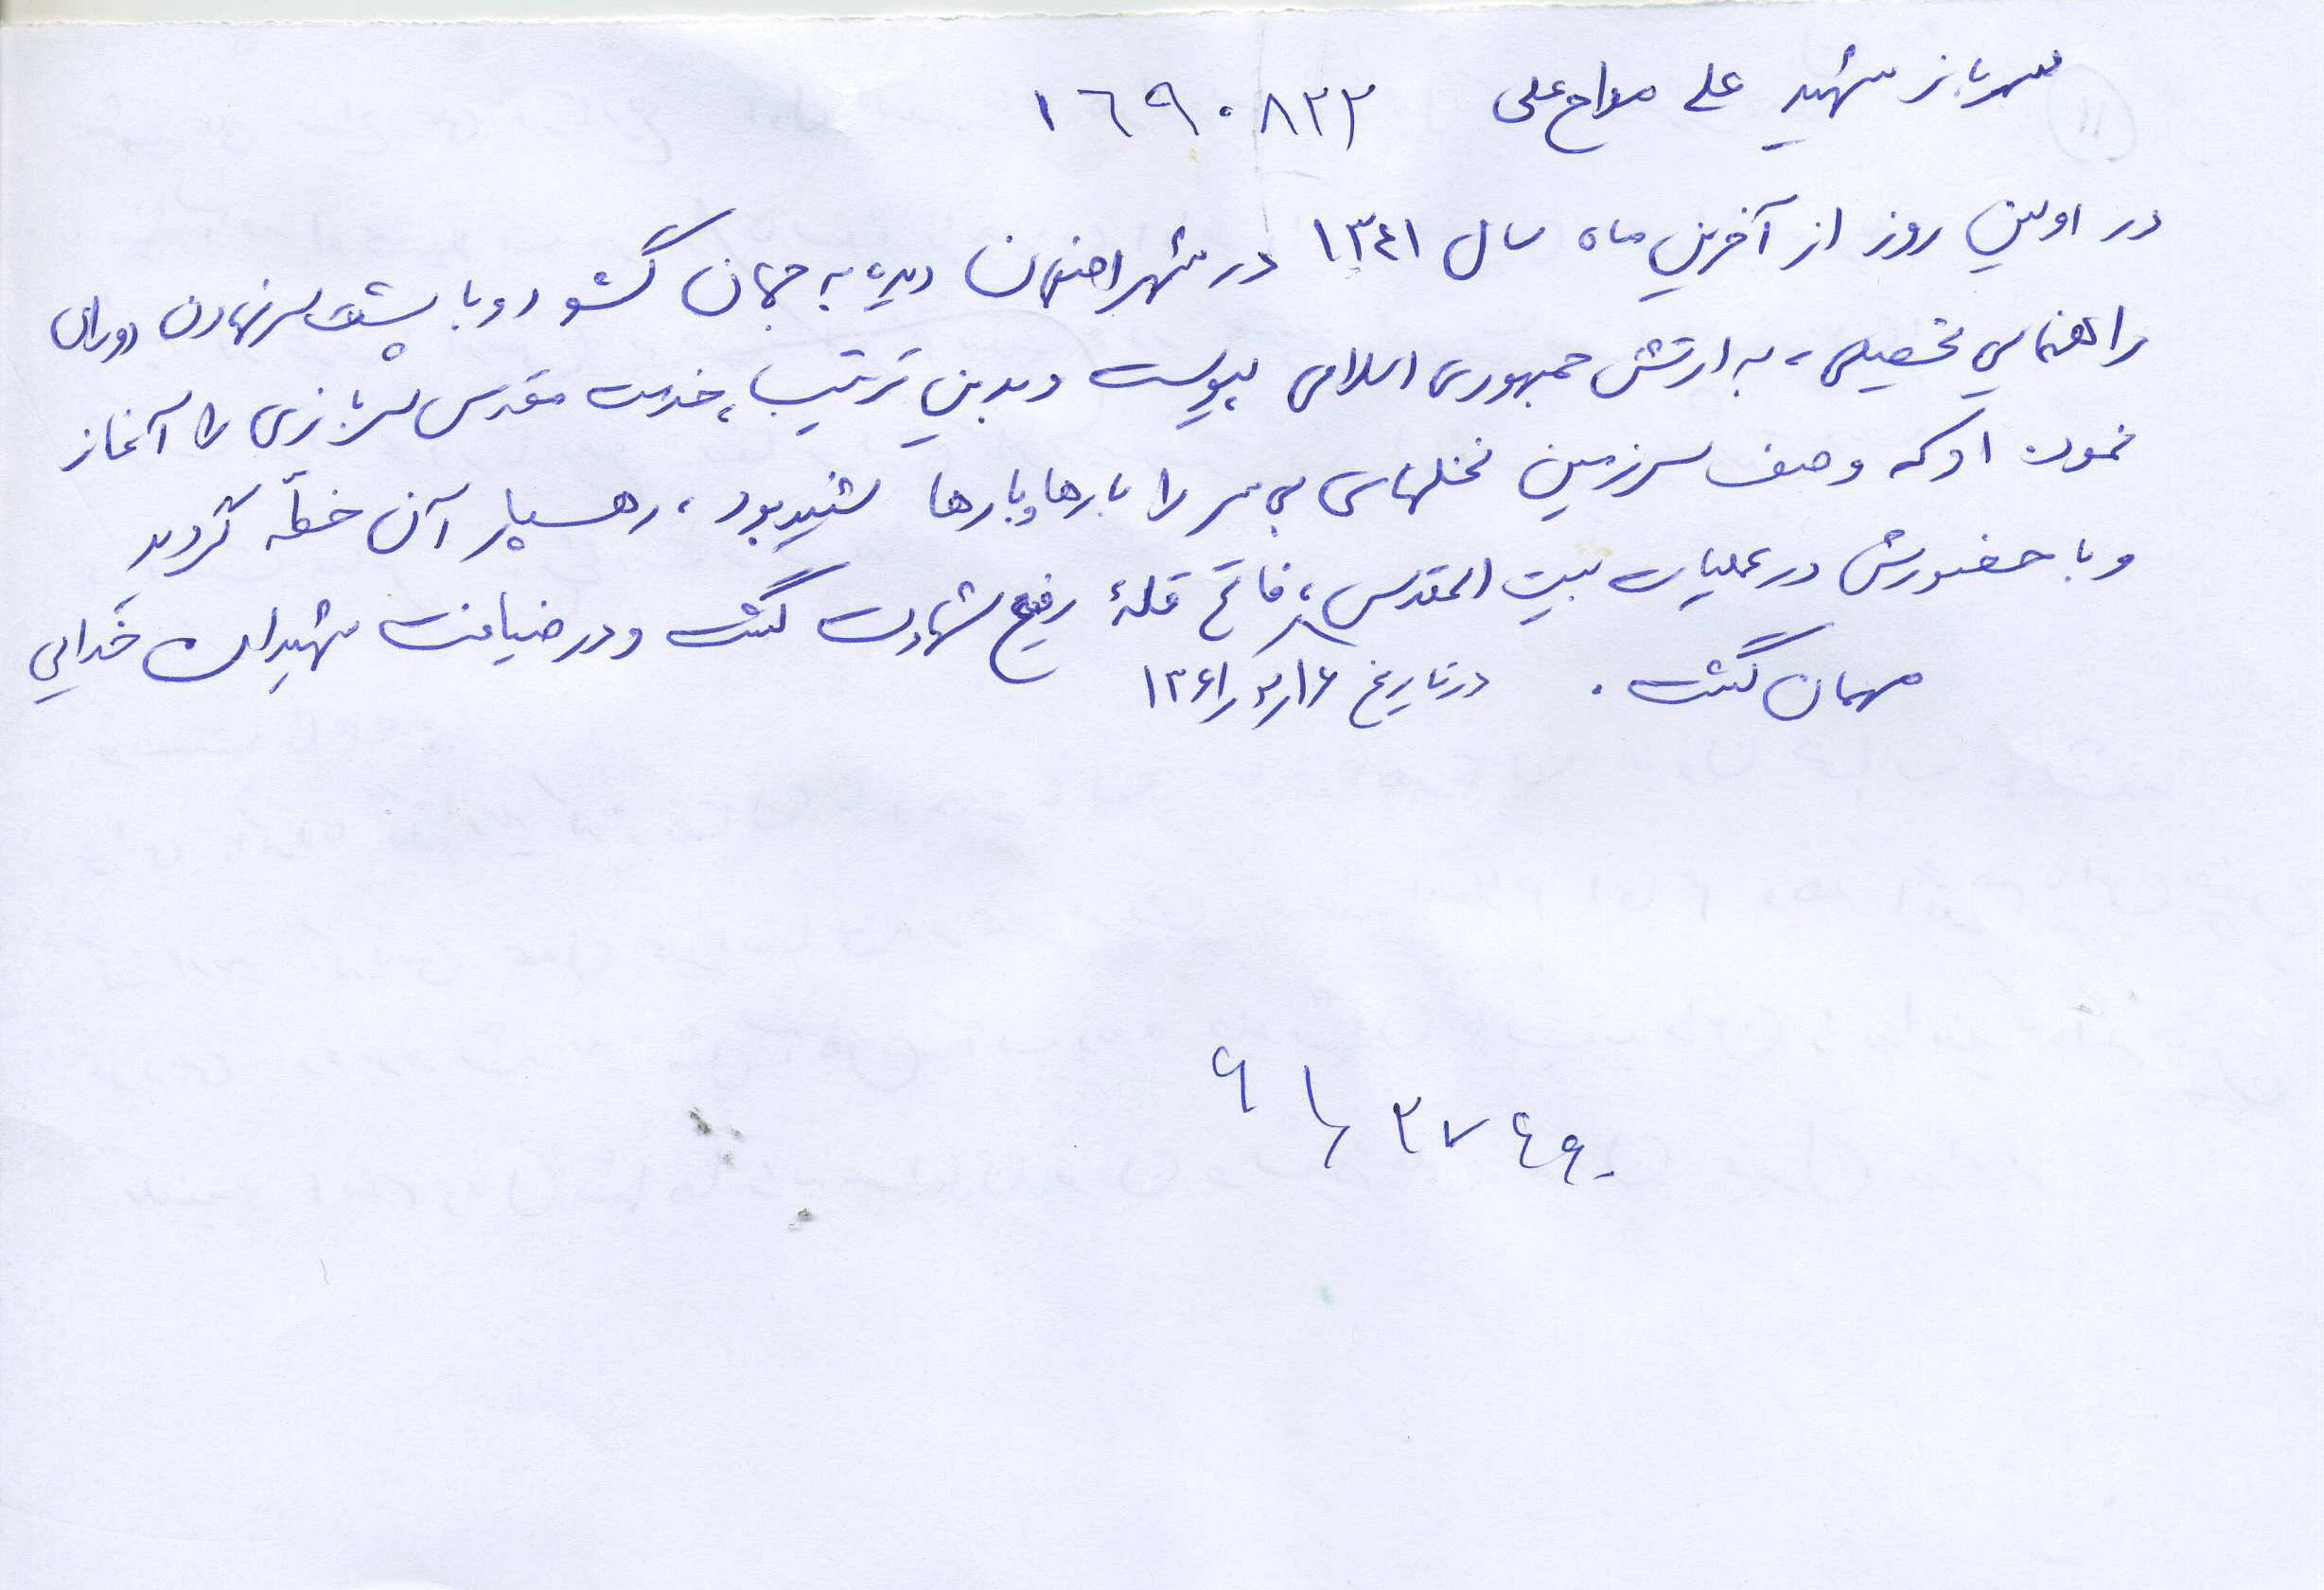 سرباز شهید علی مداح علی ۱۶۹۰۸۳۳
در اولین روز از آخرین ماه سال ۱۳۴۱ در شهر اصفهان دیده به جهان گشود و با پشت سر نهادن دوران
راهنمایی تحصیلی، به ارتش جمهوری اسلامی پیوست و بدین ترتیب، خدمت مقدس سربازی را آغاز
نمود. او که وصف سرزمین نخلهای بی سر را بارها و بارها شنیده بود، رهسپار آن خطّه گردید
و با حضورش در عملیات بیت المقدس، فاتح قلهٔ رفیع شهادت گشت و در ضیافت شهیدان خدایی
مهمان گشت. در تاریخ ۱۳۶۱/۲/۱۶